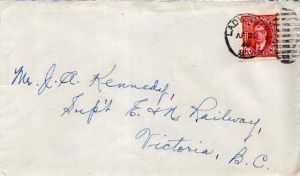 LADY
AP 22
Mr. J. A. Kennedy,
Sup't E & N Railway,
Victoria, B.C.